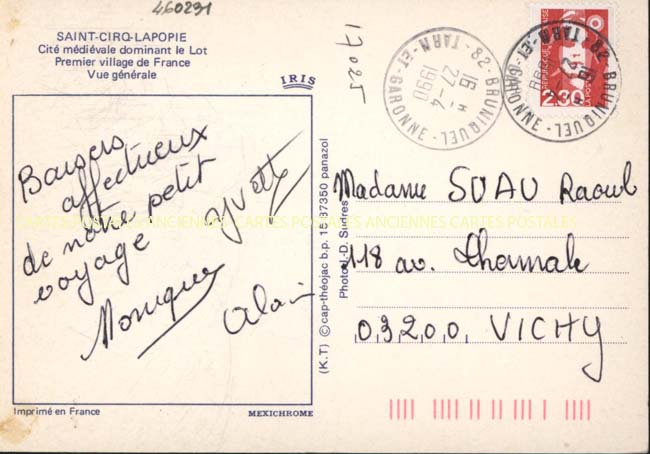 460291
SAINT-CIRQ-LAPOPIE
Cité médiévale dominant le Lot
Premier village de France
Vue générale
IRIS
17025
82-BRUNIQUEL
TARN-ET-GARONNE
16 H
27-4
1990
82-BRUNIQUEL
TARN-ET-GARONNE
16 H
2,30
Baisers
affectueux
de notre petit
voyage
Yvette
Monique
Alain
CARTES POSTALES ANCIENNES CARTES POSTALES ANCIENNES CARTES POSTALES
(K.T) © cap-théojac b.p. 15 87350 panazol
Photos J.-D. Sudres
Madame SUAU Raoul
118 av. Thermale
03200 VICHY
Imprimé en France
MEXICHROME